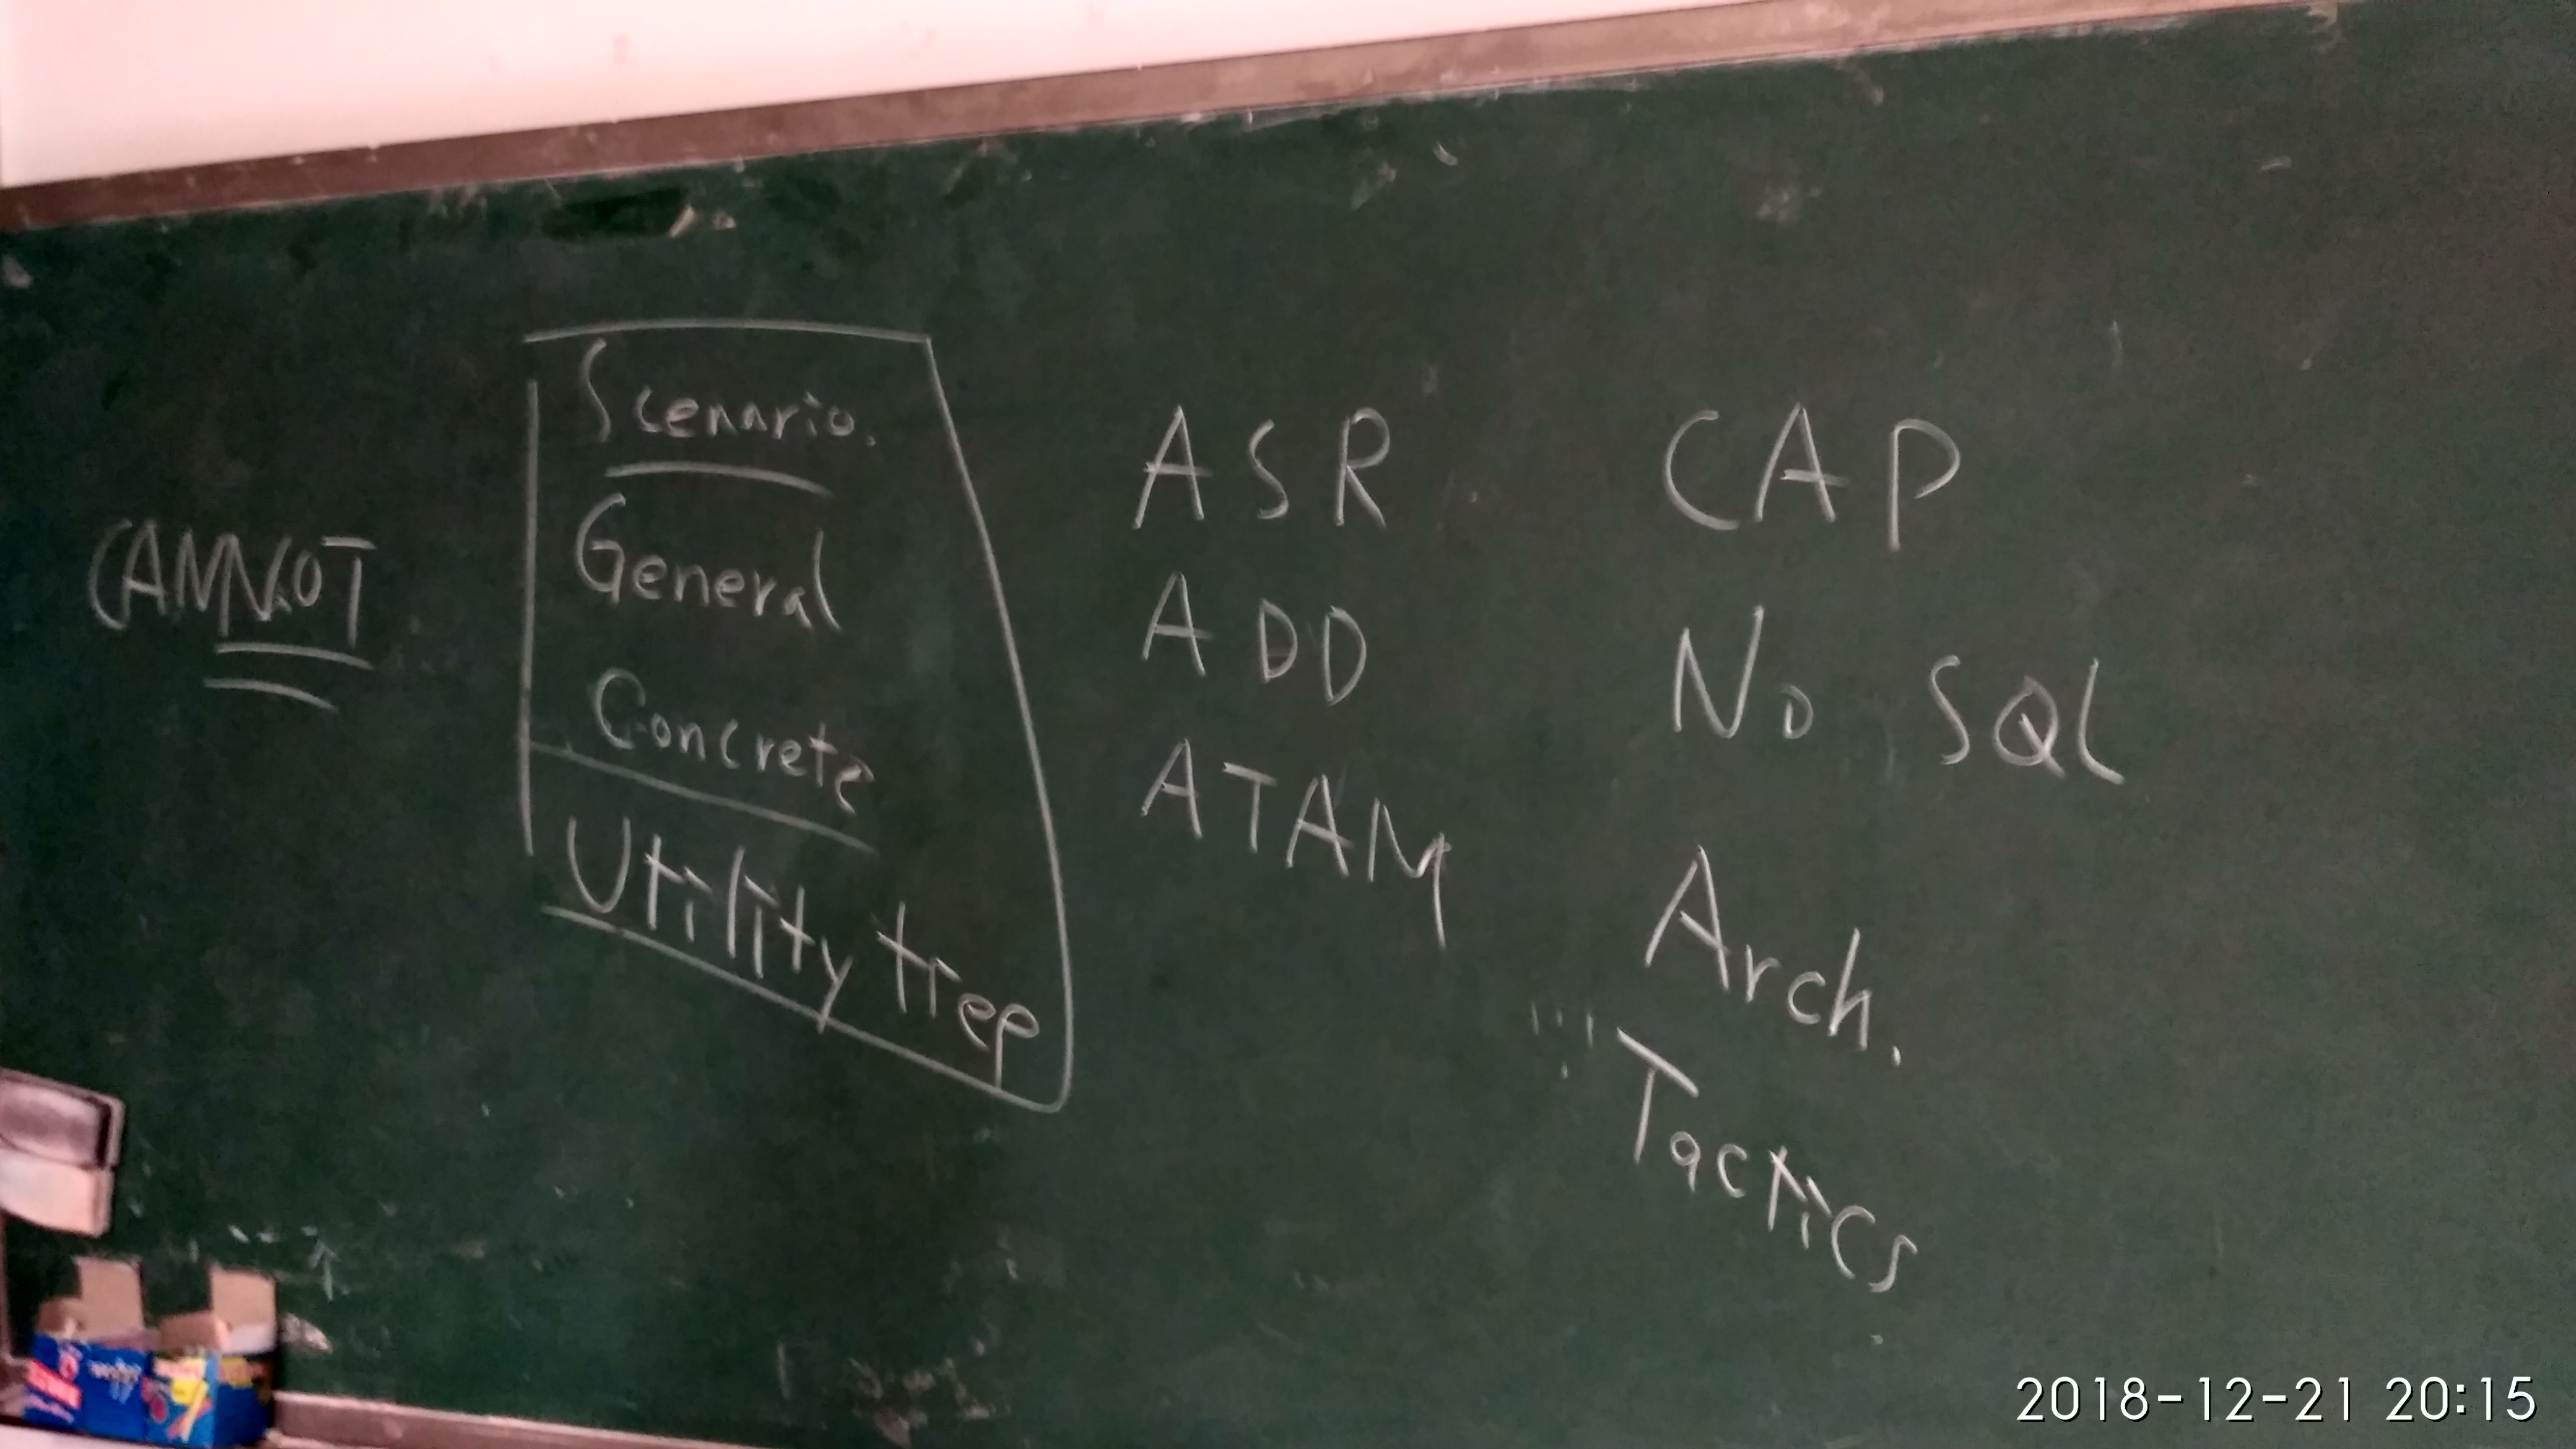 CANNOT
Scenario.
General
Concrete
Utility tree
ASR
ADD
ATAM
CAP
No SQL
Arch.
Tactics
2018-12-21 20:15